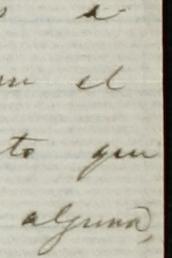 s á
un el
to que
alguna,